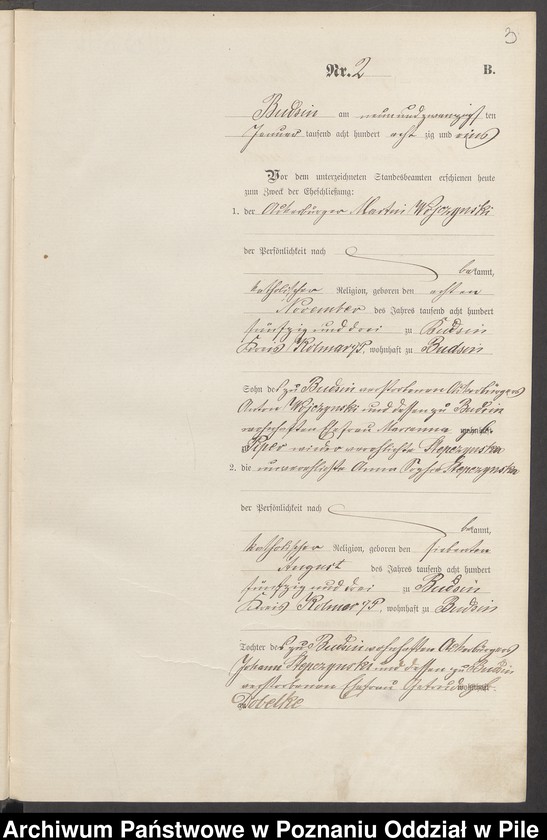 3
Nr. 2 B.
Budsin am neunundzwanzig ten
Januar tausend acht hundert acht zig und eins
Vor dem unterzeichneten Standesbeamten erschienen heute
zum Zweck der Eheschließung:
1. der Ackerbürger Martin Wojczynski
der Persönlichkeit nach
bekannt,
katholischer Religion, geboren den achten
November des Jahres tausend acht hundert
fünfzig und drei zu Budsin
Kreis Kolmar i/P, wohnhaft zu Budsin
Sohn des zu Budsin verstorbenen Ackerbürgers
Anton Wojczynski und dessen zu Budsin
wohnhaften Ehefrau Marianna geb.
wieder verehlichte Stepczynska
2. die unverehlichte Anna Sophia Stepczynska
der Persönlichkeit nach
bekannt,
katholischer Religion, geboren den siebenten
August des Jahres tausend acht hundert
fünfzig und drei zu Budsin
Kreis Kolmar i/P, wohnhaft zu Budsin
Tochter des zu Budsin wohnhaften Ackerbürgers
Johann Stepczynski und dessen zu Budsin
verstorbenen Ehefrau geb.
Dobelke
Archiwum Państwowe w Poznaniu Oddział w Pile